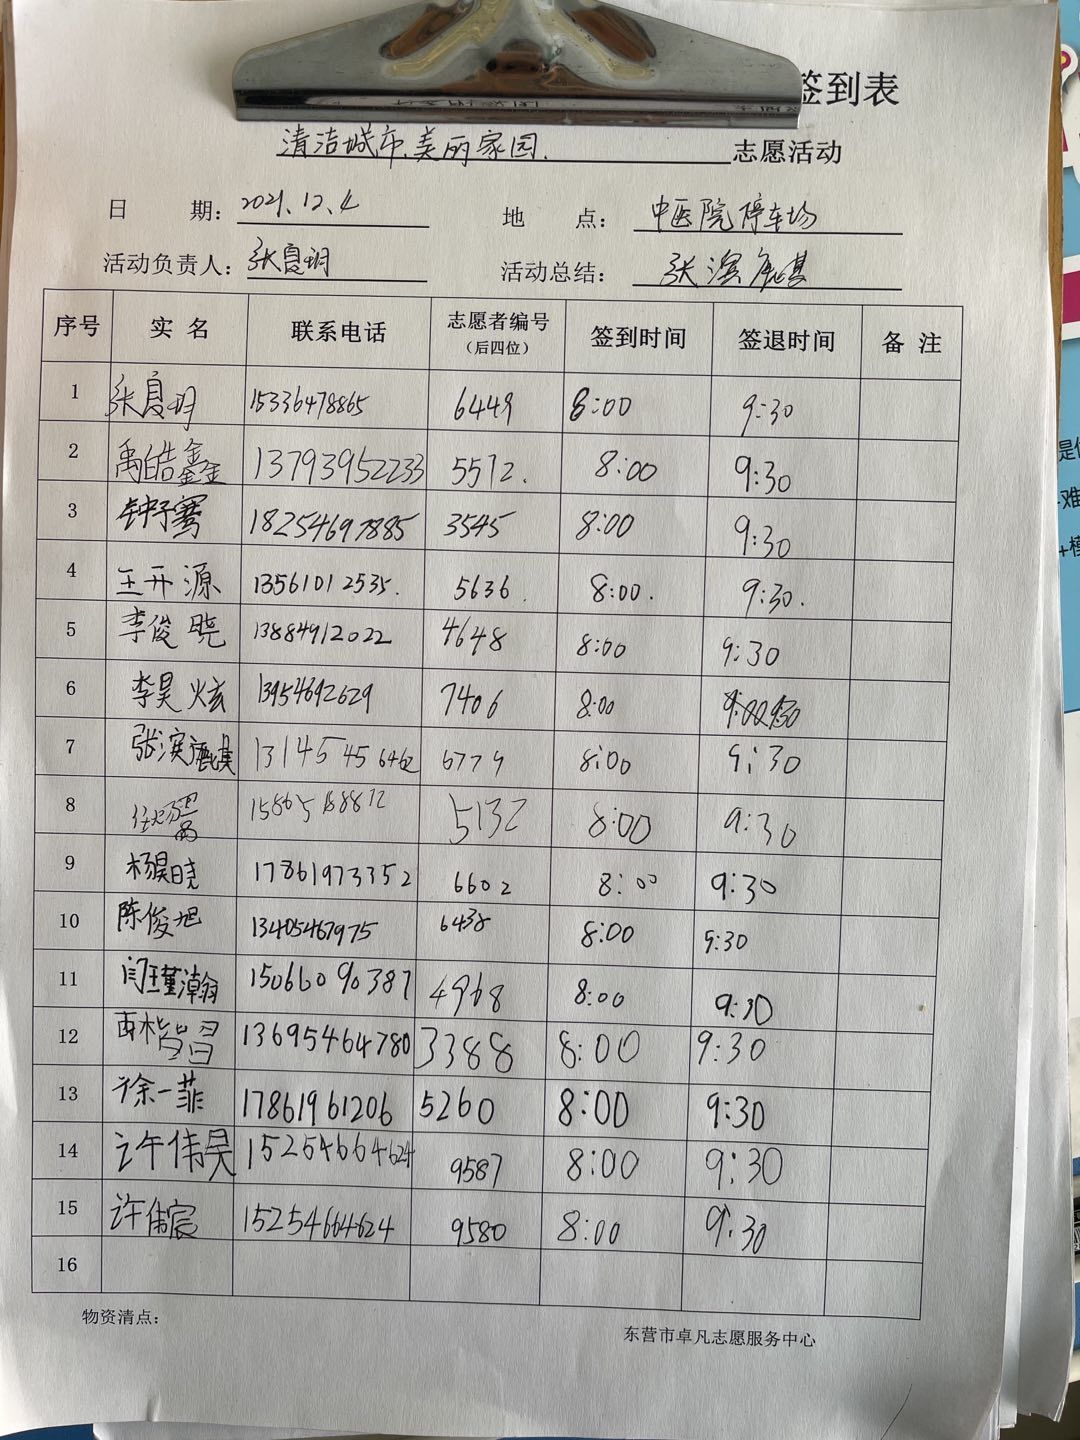 签到表
清洁城市、美丽家园. 志愿活动
日 期: 2021.12.4 地 点: 中医院停车场
活动负责人: 张夏玥 活动总结: 张滨麒
序号 实名 联系电话 志愿者编号(后四位) 签到时间 签退时间 备注
1 张夏玥 15336478865 6449 8:00 9:30
2 禹皓鑫 13793952233 5572. 8:00 9:30
3 钟子骞 18254697885 3545 8:00 9:30
4 王开源 13561012535. 5636. 8:00. 9:30.
5 李俊晓 13884912022 4648 8:00 9:30
6 李昊炫 13954692629 7406 8:00 9:30
7 张滨麒 13145456462 6779 8:00 9:30
8 5132 8:00 9:30
9 杨昊晓 17861973352 6602 8:00 9:30
10 陈俊旭 13405467975 6438 8:00 9:30
11 闫瑾瀚 15066090387 4968 8:00 9:30
12 13695464780 3388 8:00 9:30
13 徐一菲 17861961206 5260 8:00 9:30
14 许伟昊 15254664624 9587 8:00 9:30
15 许伟宸 15254664624 9580 8:00 9:30
16
物资清点:
东营市卓凡志愿服务中心